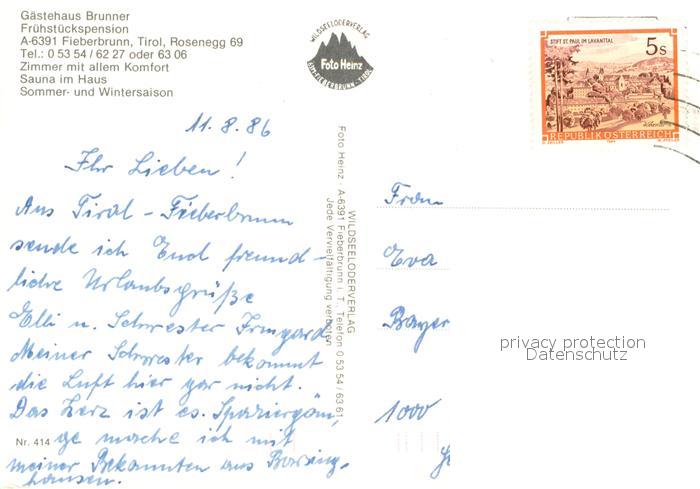 Gästehaus Brunner
Frühstückspension
A-6391 Fieberbrunn, Tirol, Rosenegg 69
Tel.: 0 53 54 / 62 27 oder 63 06
Zimmer mit allem Komfort
Sauna im Haus
Sommer- und Wintersaison
WILDSEELODERVERLAG
Foto Heinz
A-6391 FIEBERBRUNN · TIROL
STIFT ST. PAUL IM LAVANTTAL
5 S
REPUBLIK ÖSTERREICH
11.8.86
Ihr Lieben!
Aus Tirol – Fieberbrunn
sende ich Euch freund-
liche Urlaubsgrüße
Elli u. Schwester Irmgard
Meiner Schwester bekommt
die Luft hier gar nicht.
Das Herz ist es. Spaziergän,
ge mache ich mit
meiner Bekannten aus Barsing,
hausen.
Nr. 414
WILDSEELODERVERLAG
Foto Heinz · A-6391 Fieberbrunn i. T., Telefon 0 53 54 / 63 61
Jede Vervielfältigung verboten
Frau
Eva
Bayer
1000
privacy protection
Datenschutz